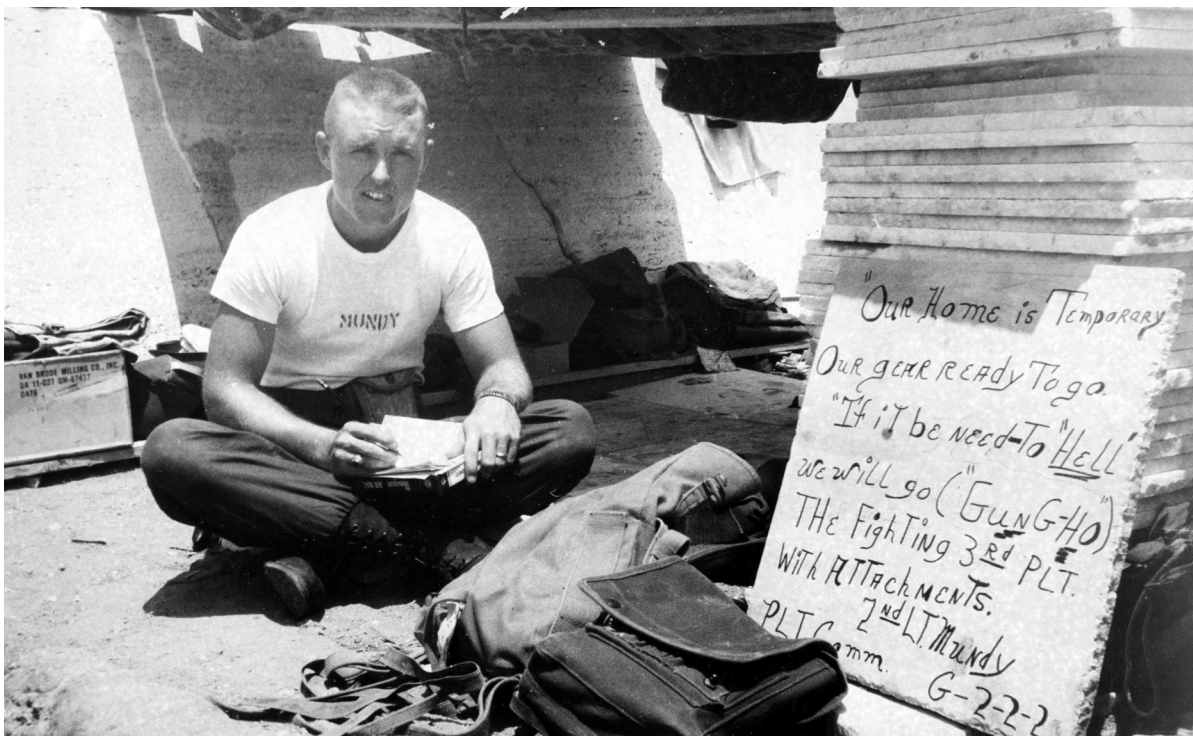 MUNDY
VAN BRODE MILLING CO., INC.
DA 11-027 QM-67437
DATE
"Our Home is Temporary
Our gear ready To go.
"If iT be need-To "Hell"
we will go ("Gung-Ho")
THe FighTing 3rd PLT.
WiTh ATTAchmenTs.
2nd LT. Mundy
PLT Comm.
G-2-2-2